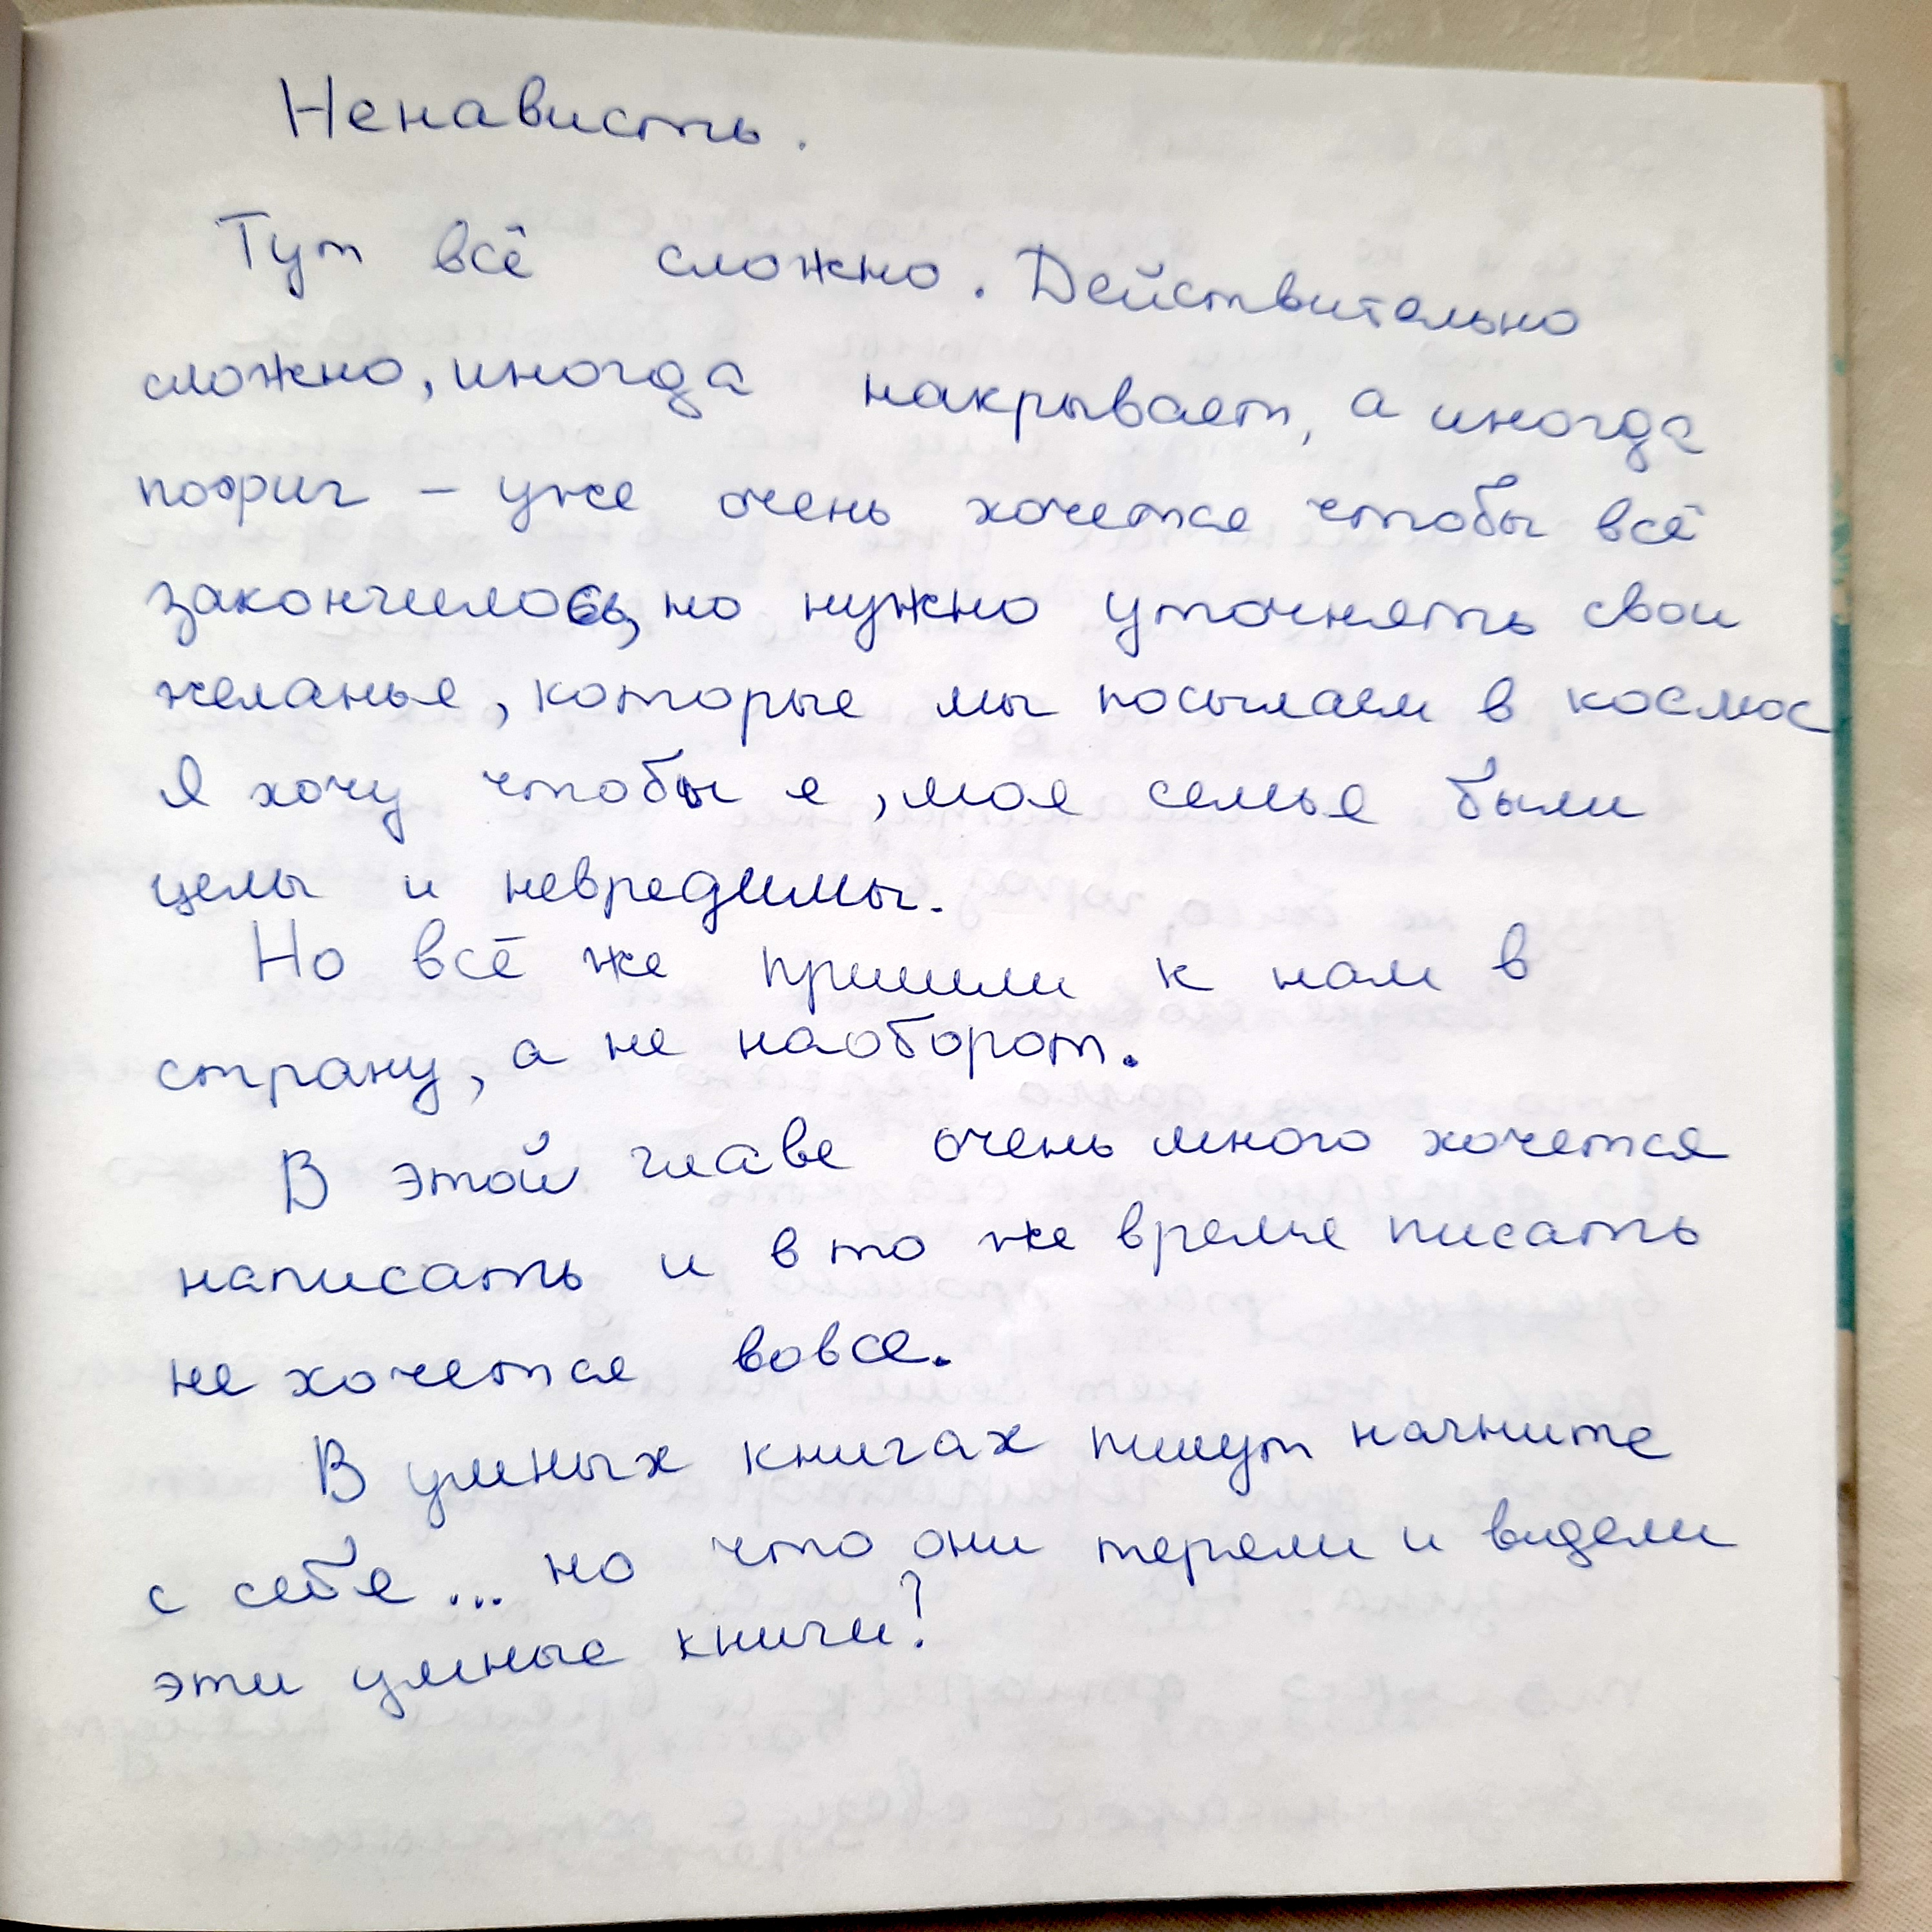 Ненависть.
Тут всё сложно. Действительно
сложно, иногда накрывает, а иногда
пофиг – уже очень хочется чтобы всё
закончилось, но нужно уточнять свои
желанья, которые мы посылаем в космос
Я хочу чтобы я, моя семья были
целы и невредимы.
Но всё же пришли к нам в
страну, а не наоборот.
В этой главе очень много хочется
написать и в то же время писать
не хочется вовсе.
В умных книгах пишут начните
с себя... но что они теряли и видели
эти умные книги?